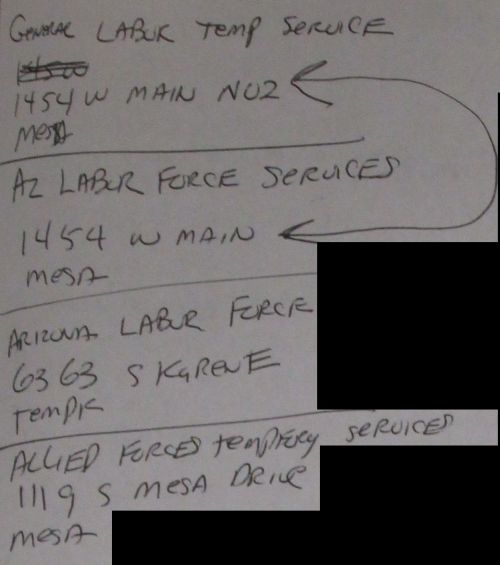 GENERAL LABUR TEMP SERVICE
1454 W MAIN NO2
MESA
AZ LABUR FORCE SERVICES
1454 W MAIN
MESA
ARIZONA LABUR FORCE
6363 S KGRENE
TEMPK
ALLIED FORCES TEMPERY SERVICES
1119 S MESA DRIVE
MESA